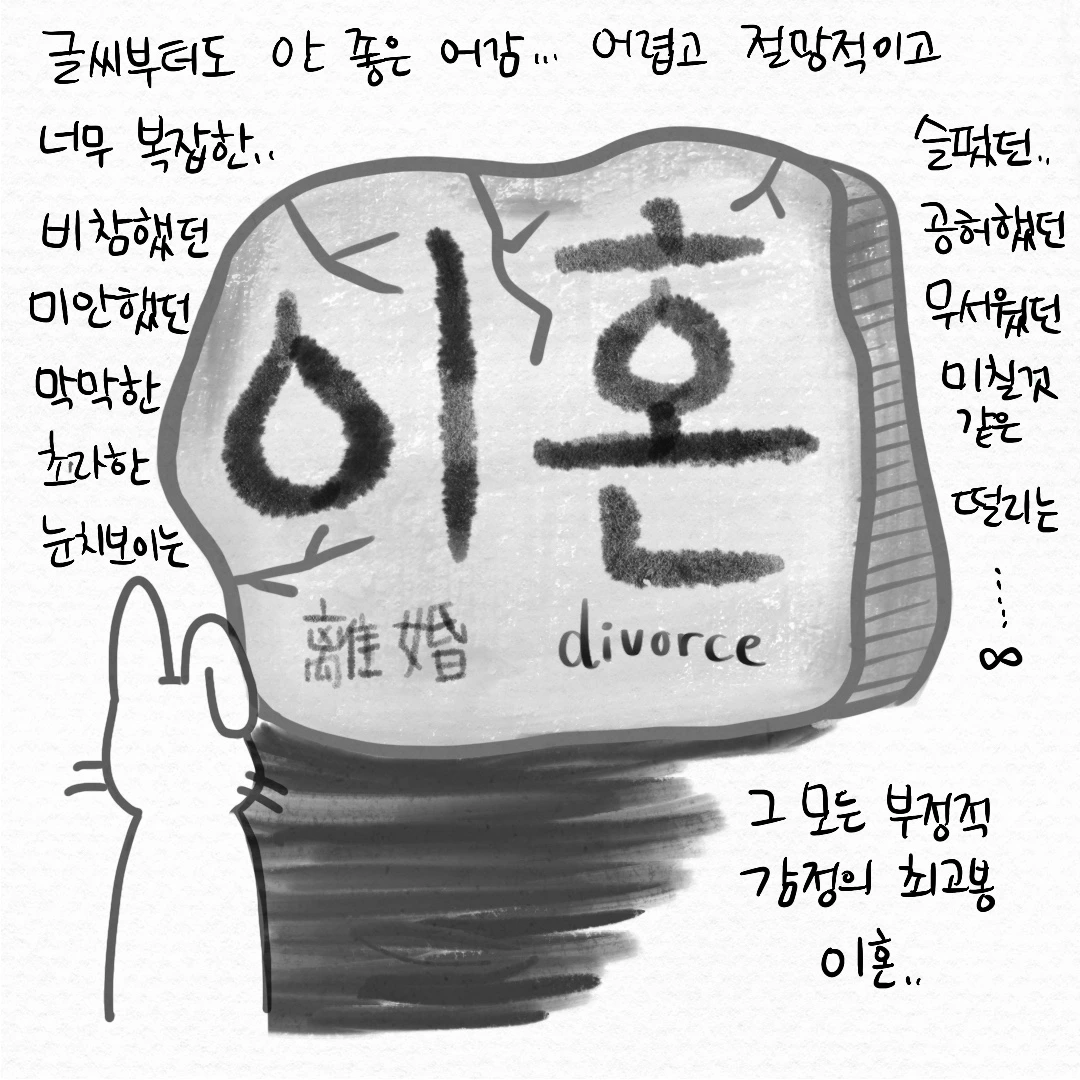 글씨부터도 안 좋은 어감... 어렵고 절망적이고
너무 복잡한..
비참했던
미안했던
막막한
초라한
눈치보이는
슬펐던..
공허했던
무서웠던
미칠것
같은
떨리는
∞
이혼
離婚 divorce
그 모든 부정적
감정의 최고봉
이혼..